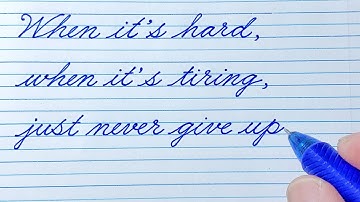 When it's hard,
when it's tiring,
just never give up